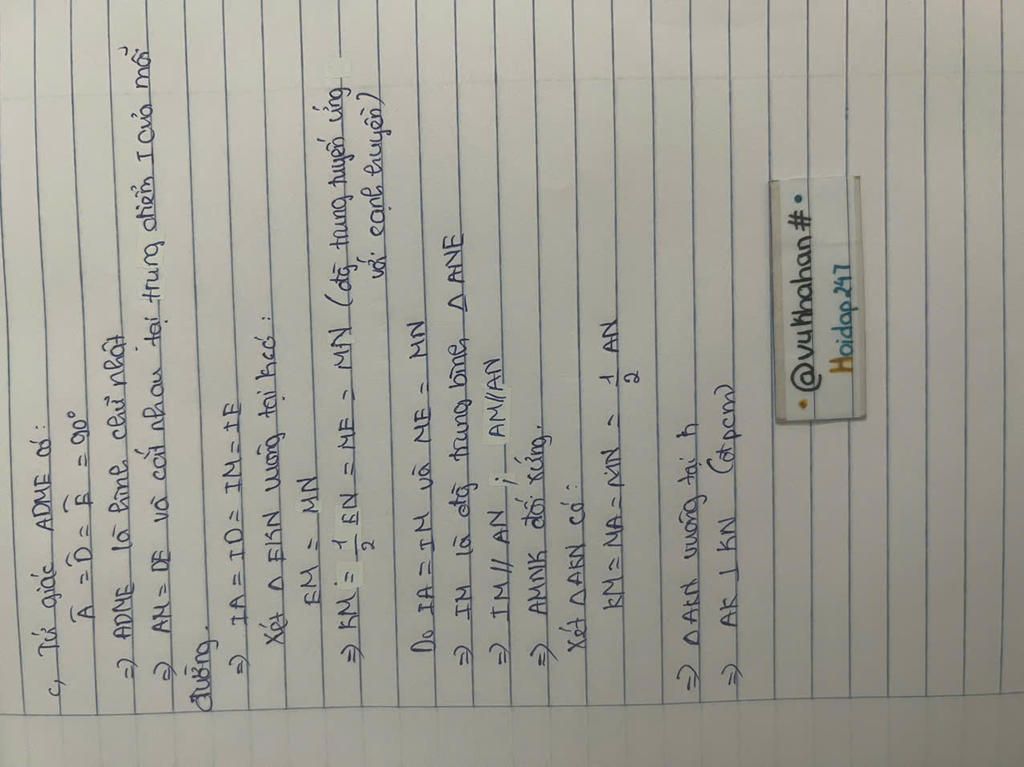 c, Tứ giác ADME có:
Â = D̂ = Ê = 90°
=> ADME là hình chữ nhật
=> AM = DE và cắt nhau tại trung điểm I của mỗi
đường.
=> IA = ID = IM = IE
Xét Δ EKN vuông tại K có:
EM = MN
=> KM = 1/2 EN = ME = MN (đg trung tuyến ứng
với cạnh huyền)
Do IA = IM và ME = MN
=> IM là đg trung bình Δ ANE
=> IM // AN ; AM // AN
=> AMNK đối xứng.
Xét Δ AKN có:
KM = MA = MN = 1/2 AN
=> Δ AKN vuông tại K
=> AK ⊥ KN (đpcm)
• @vukhahan # •
Hoidap247